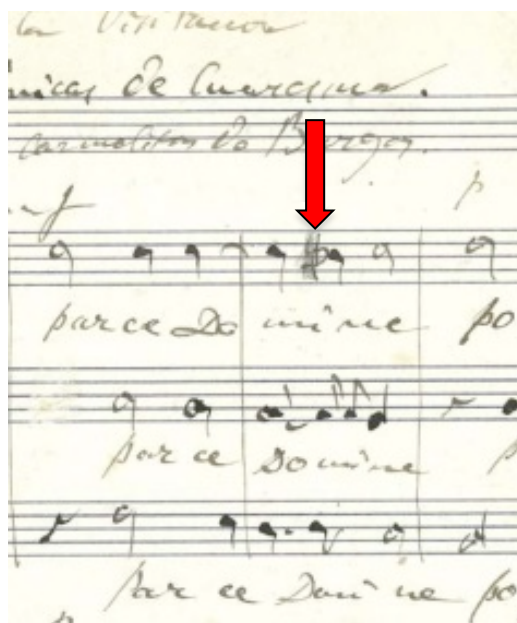 la Visitacion
de Cuaresma.
Carmelitas de Burgos.
f
p
parce Do mine po
par ce Domine p
par ce Domi ne po